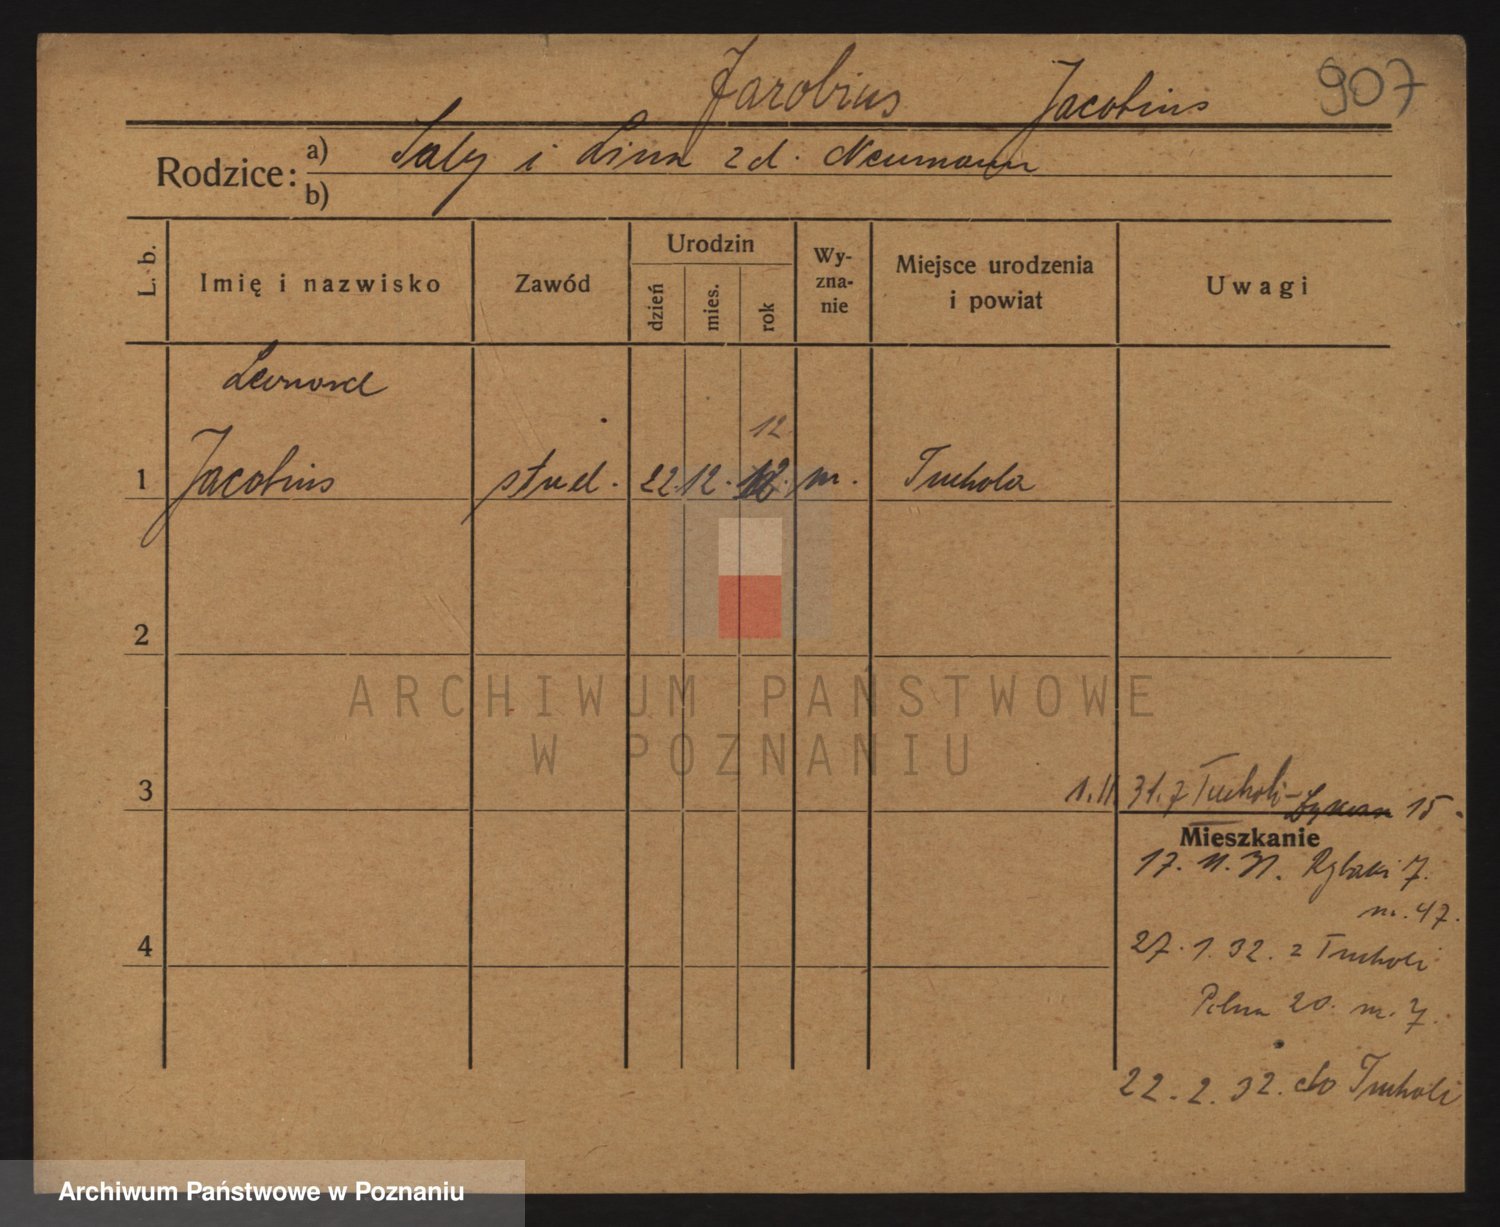 Jarobius Jacobius 907
Rodzice: a) Saly i Lina zd. Neumann
b)
L. b.
Imię i nazwisko
Zawód
Urodzin
dzień
mies.
rok
Wy-
zna-
nie
Miejsce urodzenia
i powiat
Uwagi
Leonard
12
1 Jacobius stud. 22. 12. 12. m. Tuchola
2
ARCHIWUM PAŃSTWOWE
W POZNANIU
3
1.11.31. z Tucholi 15.
Mieszkanie
17.11.31. Rybaki 7.
m. 47.
4
27.1.32. z Tucholi
Polna 20. m. 7.
22.2.32. do Tucholi
Archiwum Państwowe w Poznaniu